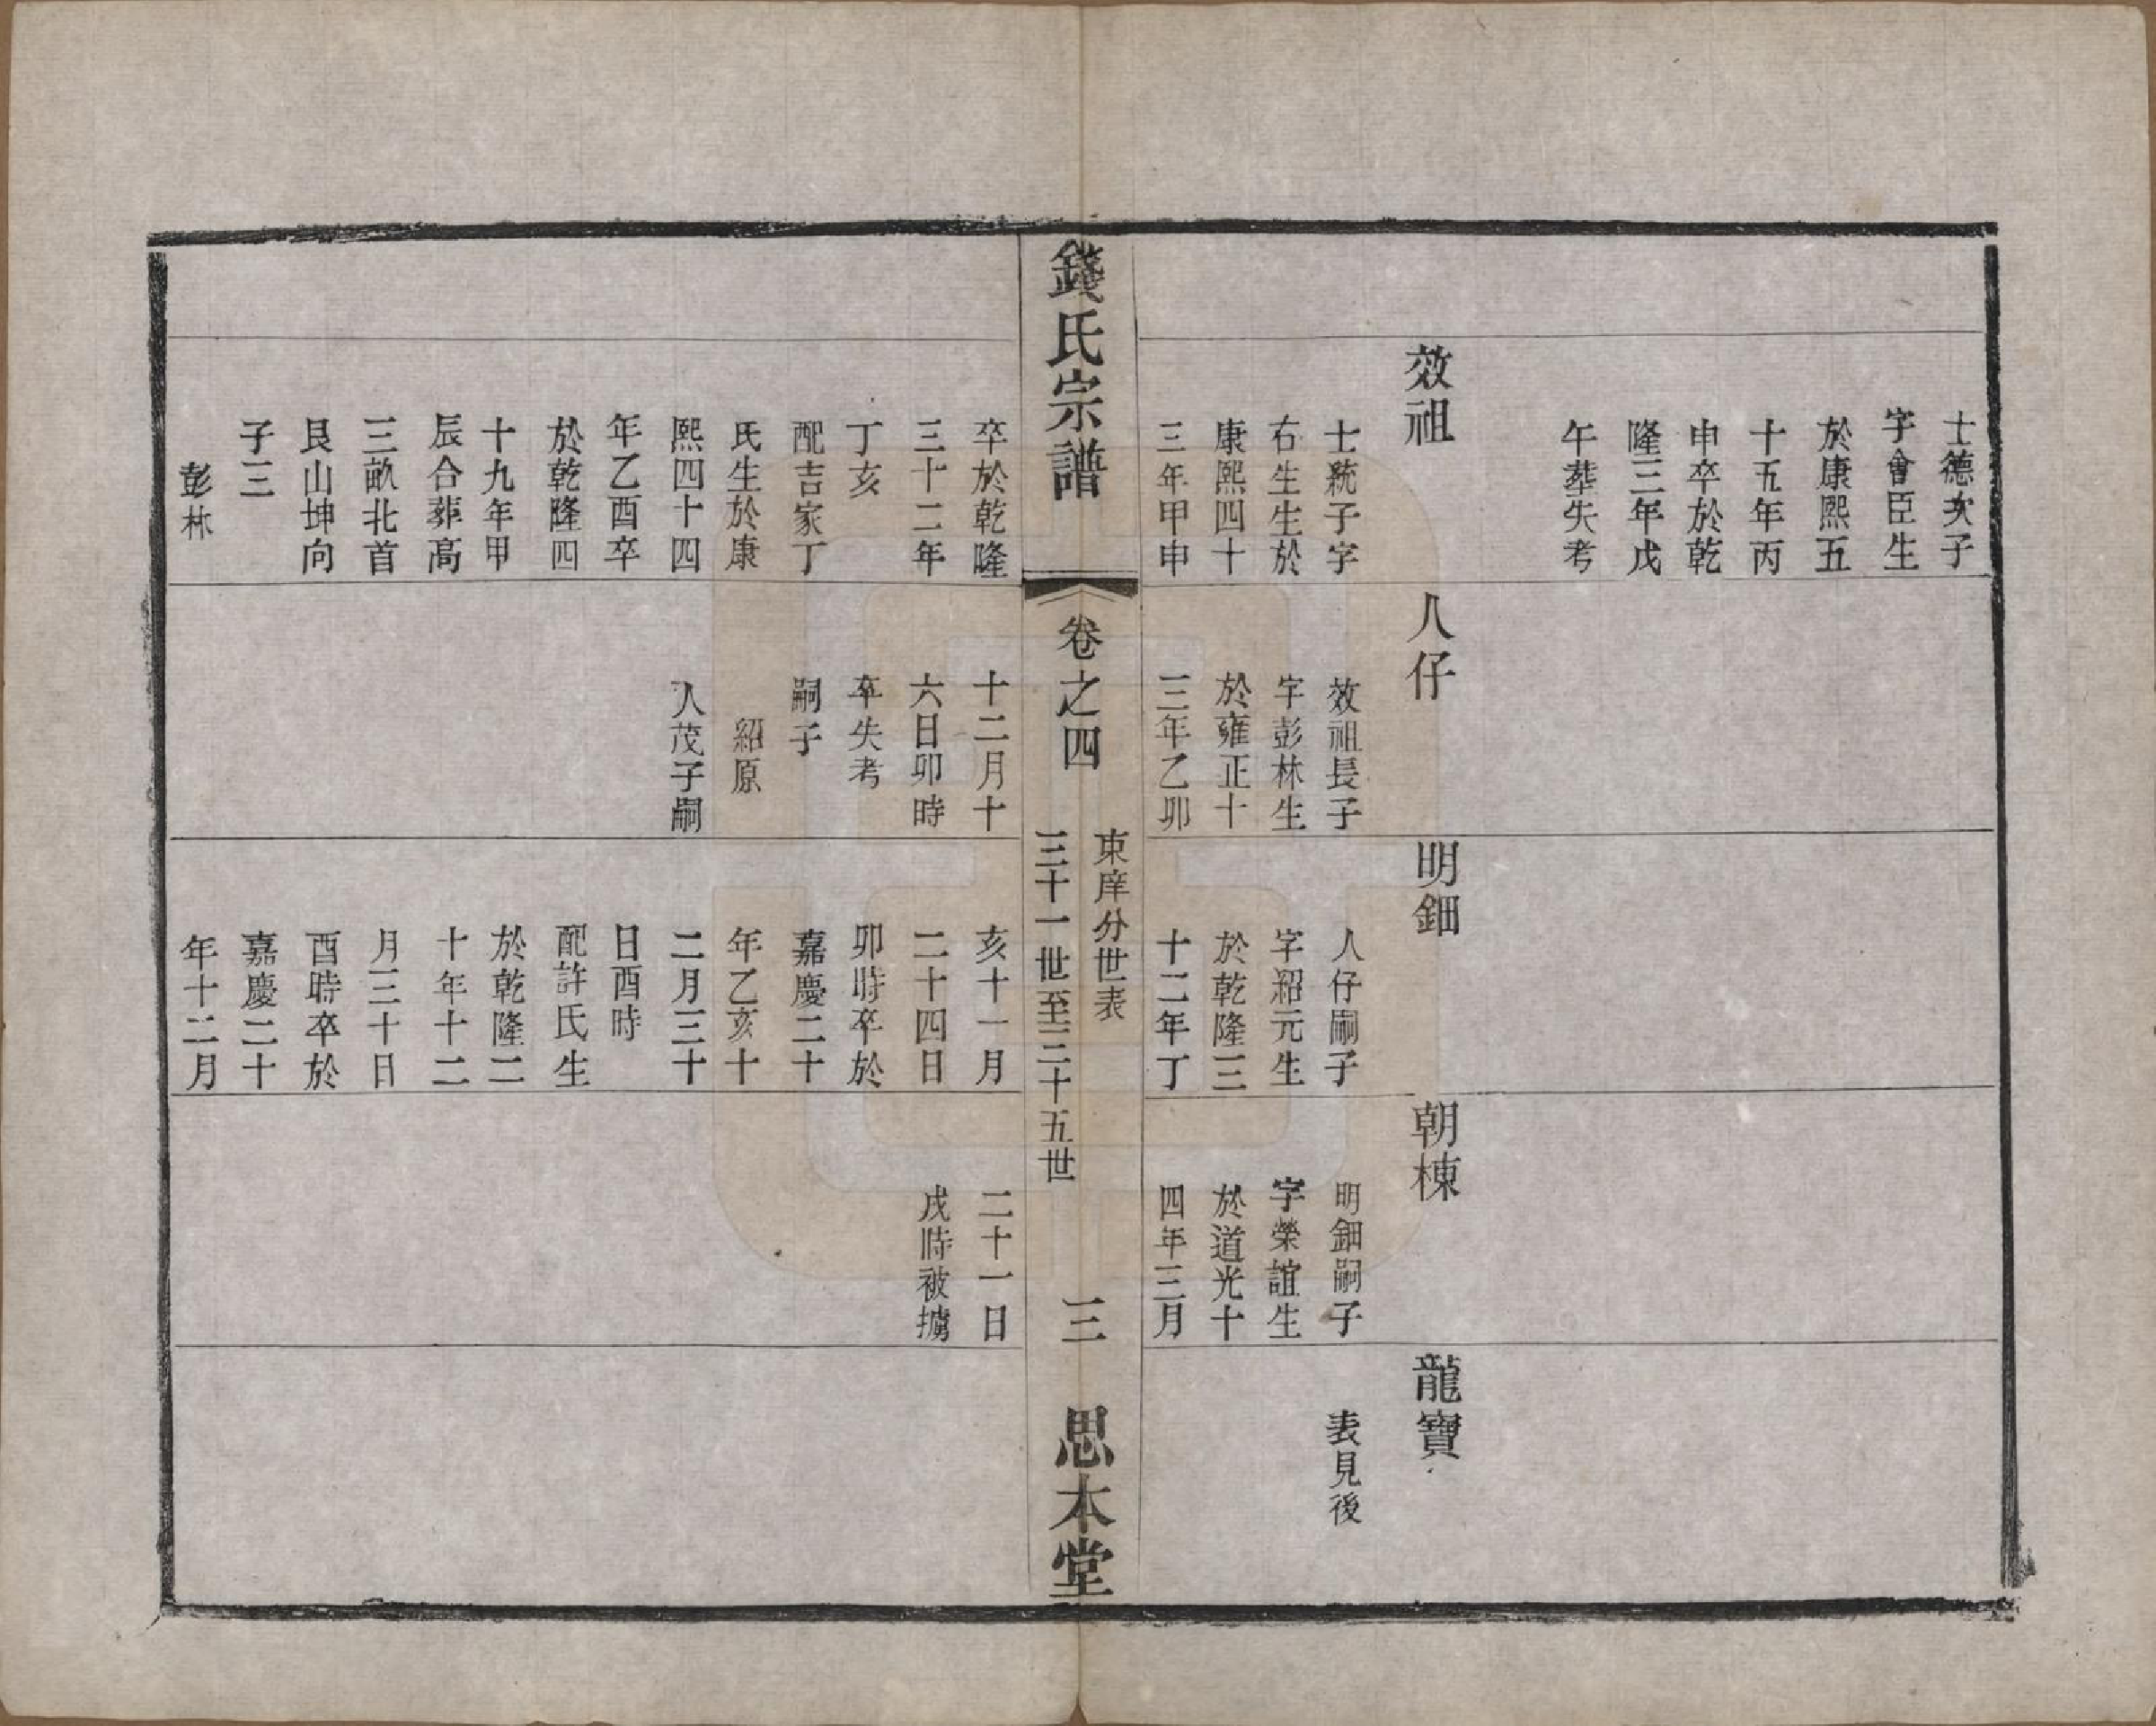 士德次子
字會臣生
於康熙五
十五年丙
申卒於乾
隆三年戊
午葬失考
效祖
士統子字
右生生於
康熙四十
三年甲申
人仔
效祖長子
字彭林生
於雍正十
三年乙卯
明鈿
人仔嗣子
字紹元生
於乾隆三
十二年丁
朝棟
明鈿嗣子
字榮誼生
於道光十
四年三月
龍寶
表見後
錢氏宗譜
卷之四
東庠分世表
三十一世至三十五世
三
思本堂
卒於乾隆
三十二年
丁亥
配吉家丁
氏生於康
熙四十四
年乙酉卒
於乾隆四
十九年甲
辰合葬高
三畝北首
艮山坤向
子三
彭林
十二月十
六日卯時
卒失考
嗣子
紹原
人茂子嗣
亥十一月
二十四日
卯時卒於
嘉慶二十
年乙亥十
二月三十
日酉時
配許氏生
於乾隆二
十年十二
月三十日
酉時卒於
嘉慶二十
年十二月
二十一日
戌時被擄